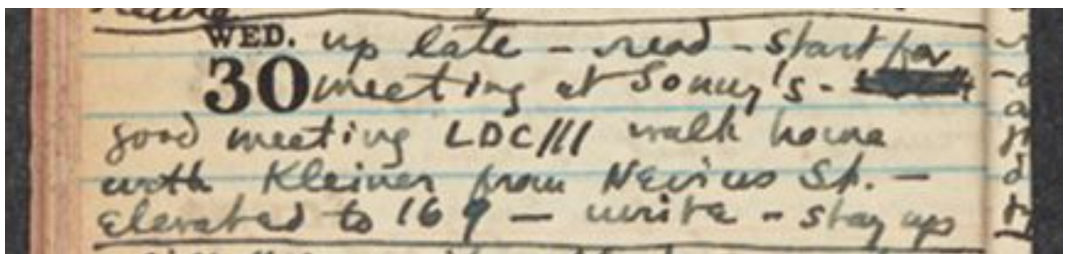 WED. up late – read – start for
30 meeting at Sonny's –
good meeting LDC/// walk home
with Kleiner from Nevins St. –
elevated to 169 – write – stay up